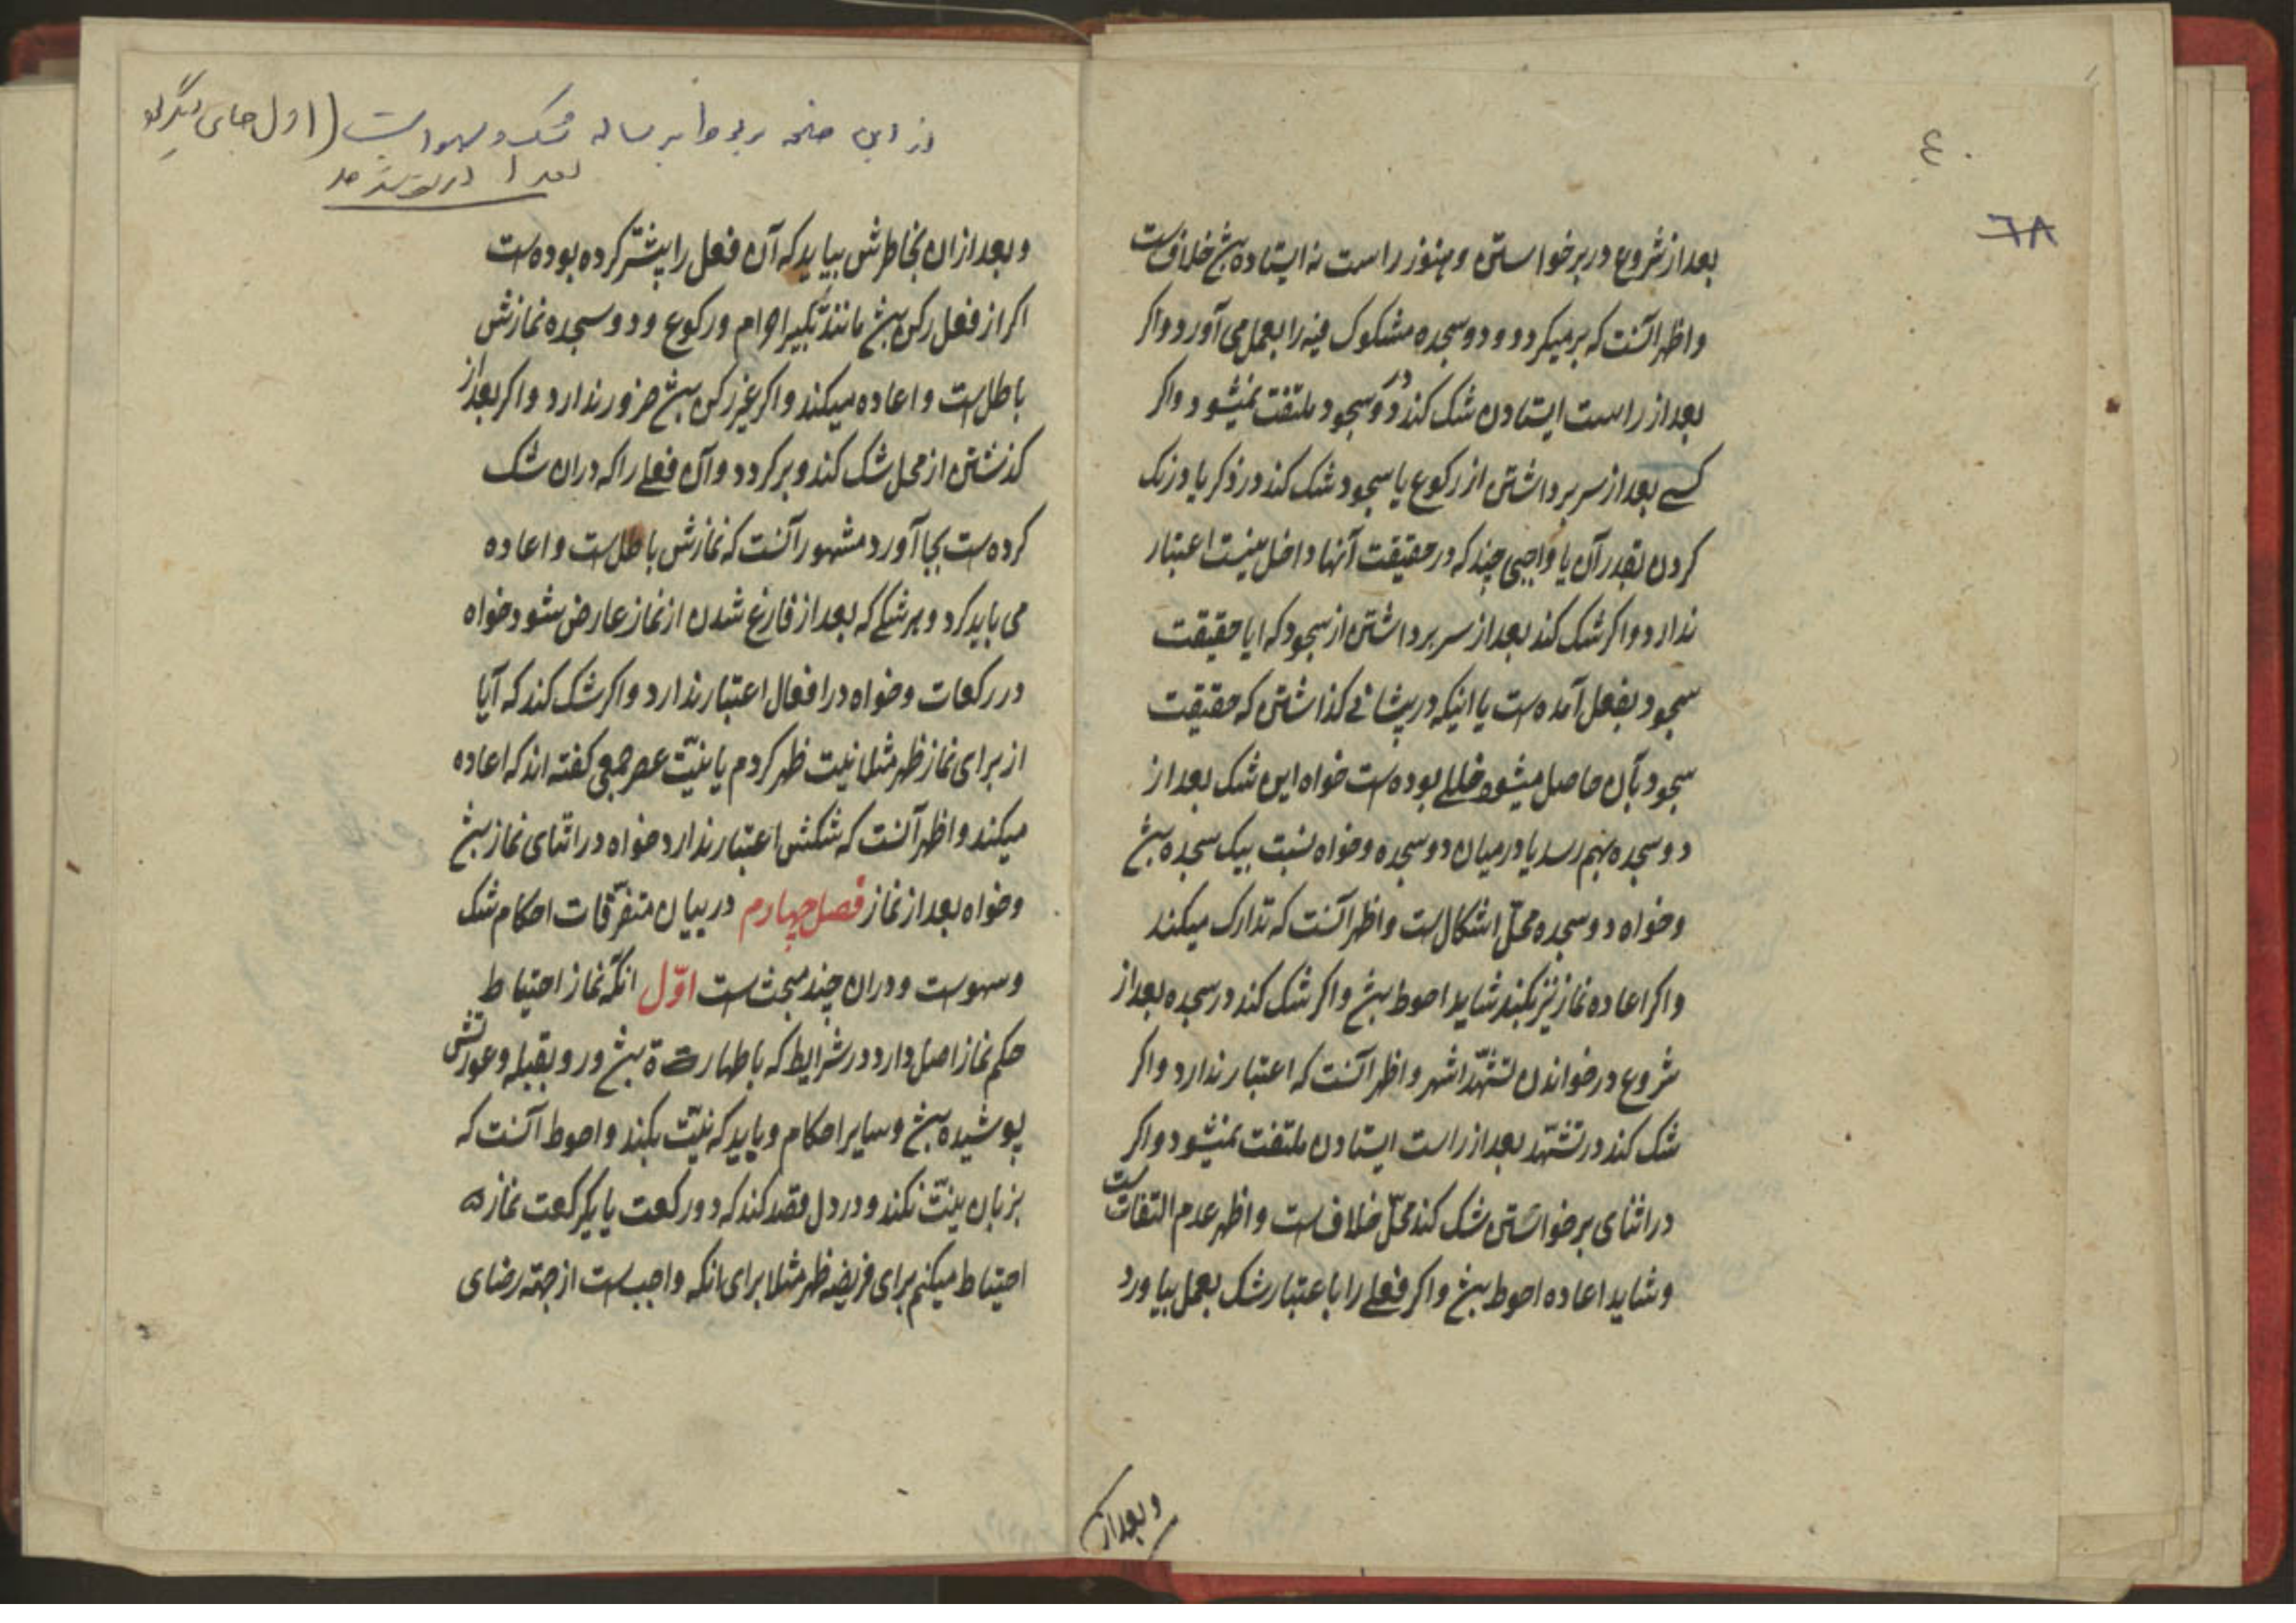 ٤٠
٦٨
بعد از شروع در برخواستن و هنوز راست نه ایستاده بش خلافست
واظهر آنست که برمیکردد و دو سجده مشکوک فیه را بعمل می آورد واکر
بعد از راست ایستادن شک کند در دو سجود ملتفت نمیشود واکر
کسے بعد از سر برداشتن از رکوع یا سجود شک کند در ذکر یا درنک
کردن بقدر آن یا واجبی چند که در حقیقت آنها داخل نیست اعتبار
ندارد واکر شک کند بعد از سر برداشتن از سجود که ایا حقیقت
سجود بفعل آمده ست یا اینکه در پیشانے کذاشتن که حقیقت
سجود بآن حاصل میشود خللے بوده ست خواه این شک بعد از
دو سجده بهم رسد یا در میان دو سجده وخواه نسبت بیک سجده بش
وخواه دو سجده محلّ اشکالست واظهر آنست که تدارک میکند
واکر اعاده نماز نیز بکند شاید احوط بش واکر شک کند در سجده بعد از
شروع در خواندن تشهّد اشهر واظهر آنست که اعتبار ندارد واکر
شک کند در تشهّد بعد از راست ایستادن ملتفت نمیشود واکر
در اثنای برخواستن شک کند محلّ خلافست واظهر عدم التفاتست
وشاید اعاده احوط بش واکر فعلے را باعتبار شک بعمل بیاورد
وبعد از
از این صفحه مربوط برساله شک و سهو است (اول جای دیگر
بعدا
وبعد ازان بخاطرش بیاید که آن فعل را پیشتر کرده بوده ست
اکر از فعل رکن بش مانند تکبیر احرام ورکوع ودو سجده نمازش
باطلست واعاده میکند واکر غیر رکن بش ضرور ندارد واکر بعد از
کذشتن از محل شک کند وبرکردد وآن فعلے را که دران شک
کرده ست بجا آورد مشهور آنست که نمازش باطلست واعاده
می باید کرد وهر شکے که بعد از فارغ شدن از نماز عارض شود خواه
در رکعات وخواه در افعال اعتبار ندارد واکر شک کند که آیا
از برای نماز ظهر مثلا نیت ظهر کردم یا نیّت عصر جمعی کفته اند که اعاده
میکند واظهر آنست که شکش اعتبار ندارد خواه در اثنای نماز بش
وخواه بعد از نماز فصل چهارم در بیان متفرّقات احکام شک
وسهوست ودران چند مبحث ست اوّل انکه نماز احتیاط
حکم نماز اصل دارد در شرایط که با طهارت بش ورو بقبله وعورتش
پوشیده بش وسایر احکام وباید که نیّت بکند واحوط آنست که
بزبان نیّت نکند ودر دل قصد کند که دو رکعت یا یکرکعت نماز
احتیاط میکنم برای فریضه ظهر مثلا برای انکه واجبست از جهة رضای